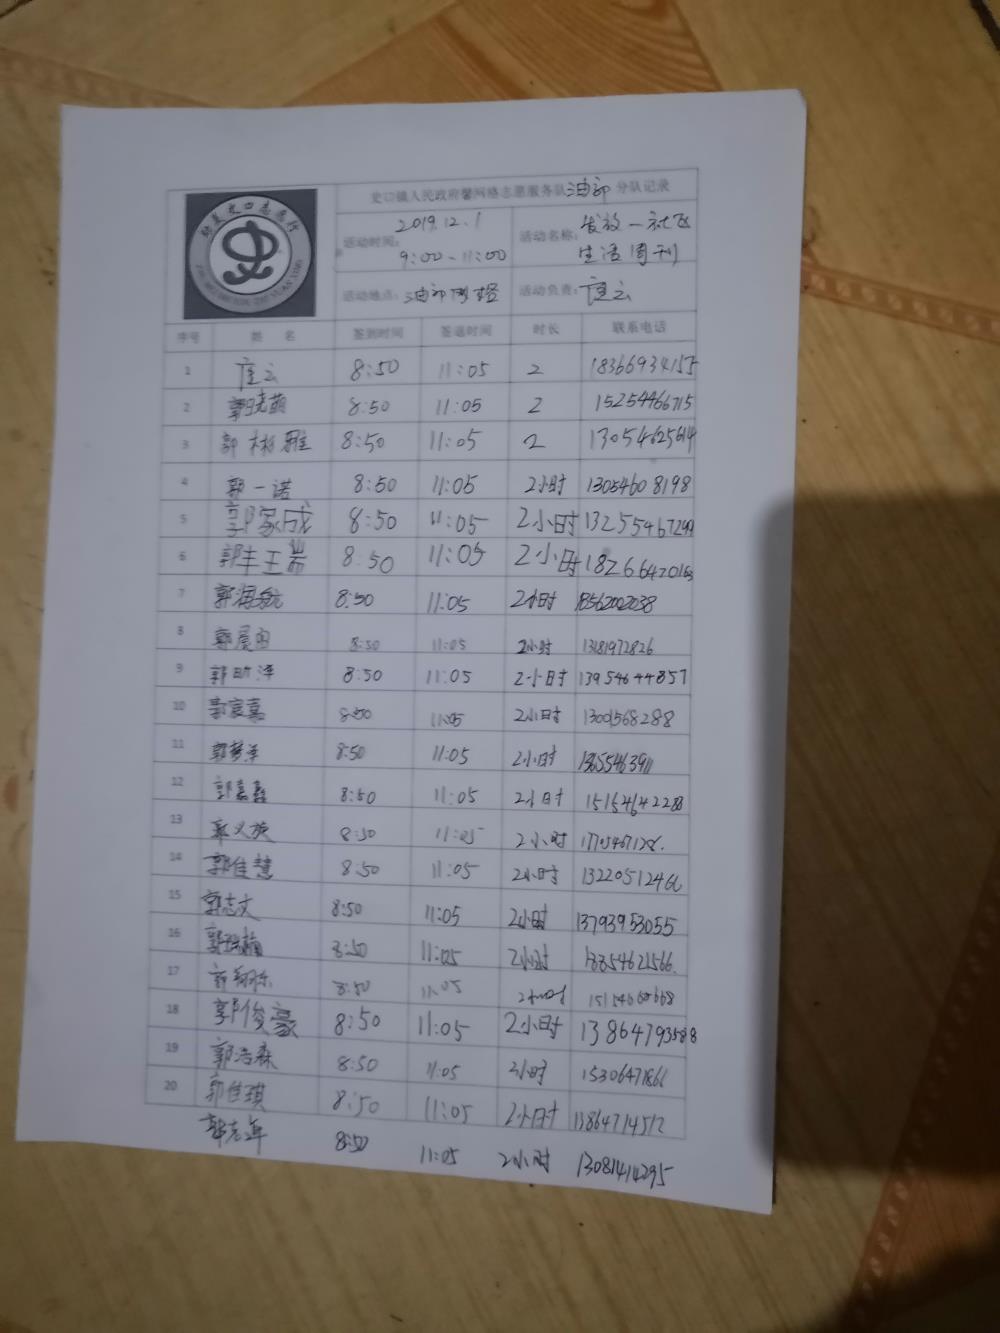 史口镇人民政府馨网格志愿服务队油郭分队记录
活动时间: 2019.12.1 9:00-11:00 活动名称: 发放一社飞生活周刊
活动地点: 油郭网格 活动负责:
序号 姓名 签到时间 签退时间 时长 联系电话
1 8:50 11:05 2 18366934155
2 郭晓萌 8:50 11:05 2 15254466715
3 郭彬雅 8:50 11:05 2 13054625614
4 郭一诺 8:50 11:05 2小时 13054608198
5 郭家成 8:50 11:05 2小时
6 郭丰王岩 8:50 11:05 2小时
7 郭海航 8:50 11:05 2小时 18562002038
8 8:50 11:05 2小时 13181972826
9 郭昕泽 8:50 11:05 2小时 13954644857
10 郭宸嘉 8:50 11:05 2小时 13001568288
11 郭梦泽 8:50 11:05 2小时
12 郭嘉鑫 8:50 11:05 2小时 15154642288
13 郭义族 8:50 11:05 2小时
14 郭佳慧 8:50 11:05 2小时 13220512466
15 郭志文 8:50 11:05 2小时 13793953055
16 8:50 11:05 2小时 13854621566.
17 8:50 11:05 2小时
18 郭俊豪 8:50 11:05 2小时
19 郭浩森 8:50 11:05 2小时 15306471861
20 郭佳琪 8:50 11:05 2小时 13864714512
郭志军 8:50 11:05 2小时 13081414295